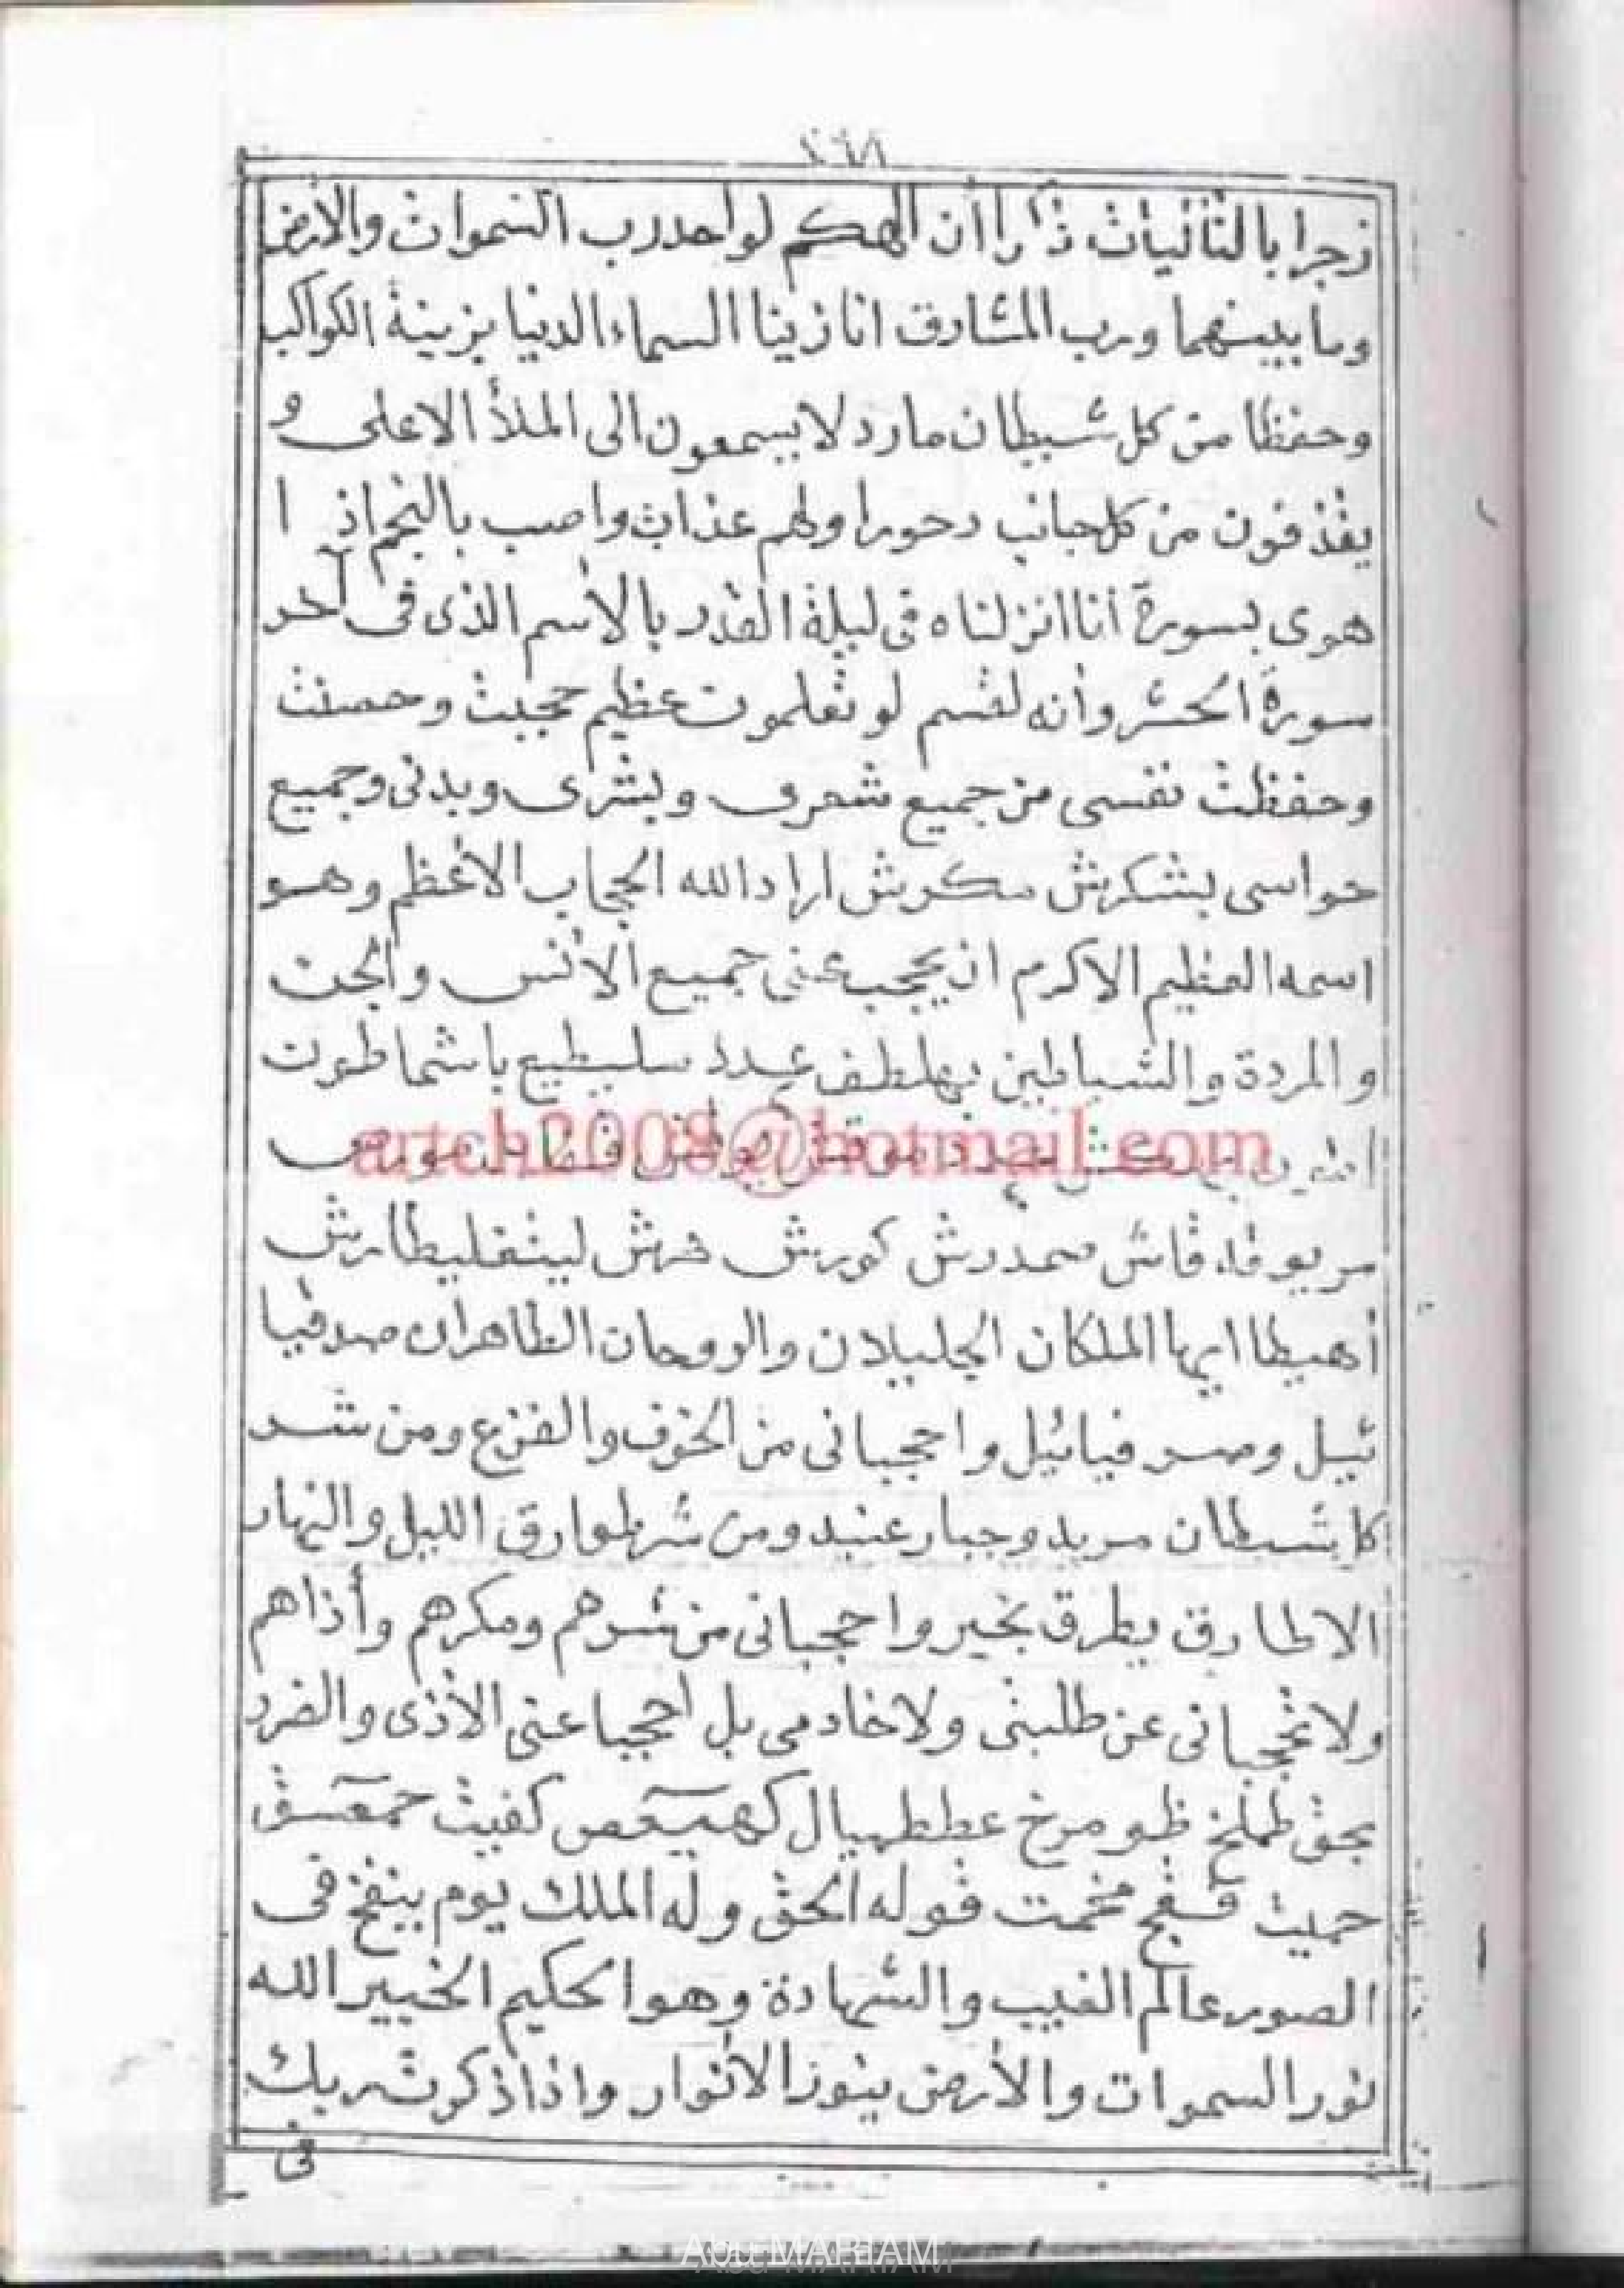 ٤٦٨
زجرا بالتاليات ذكرا أن الهكم لواحد رب السموات والأرض
وما بينهما ورب المشارق انا زينا السماء الدنيا بزينة الكواكب
وحفظا من كل شيطان مارد لا يسمعون الى الملأ الاعلى و
يقذفون من كل جانب دحورا ولهم عذاب واصب بالنجم اذ ا
هوى بسورة أنا انزلناه فى ليلة القدر بالأسم الذى فى آخر
سورة الحشر وأنه لقسم لو تعلمون عظيم حجبت وحصنت
وحفظت نفسى من جميع شعرى وبشرى وبدنى وجميع
حواسى بشكرش سكرش اراد الله الحجاب الأعظم وهو
اسمه العظيم الاكرم ان يحجب عنى جميع الأنس والجن
والمردة والشياطين بهلطف عدد سليطيع باشماطون
artch2008@hotmail.com
قاش سمدرش كورش هرش لينقليطارش
أهبطا ايها الملكان الجليلان والروحان الطاهران صدفيا
ئيل وصرفيائيل واحجبانى من الخوف والفزع ومن شر
كل شيطان مريد وجبار عنيد ومن شر طوارق الليل والنهار
الا طارق يطرق بخير واحجبانى من شرهم ومكرهم وأذاهم
ولا تحجبانى عن طلبنى ولا خادمى بل احجبا عنى الأذى والضرر
بحق طملخ ظو مرخ عططهيال كهيعص كفيت حمعسق
حميت فقج مخمت قوله الحق وله الملك يوم ينفخ فى
الصور عالم الغيب والشهادة وهو الحكيم الخبير الله
نور السموات والأرض ينوز الأنوار واذا ذكرت ربك
فى
Abu MARIAM